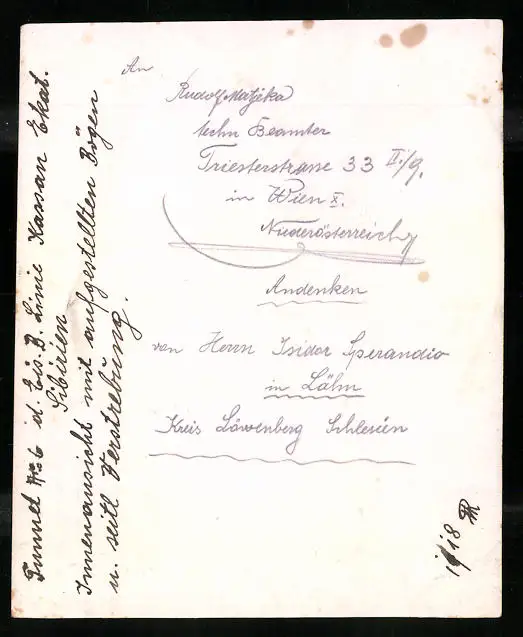 An
Rudolf Matjeka
techn Beamter
Triesterstrasse 33 II./9.
in Wien X.
Niederösterreich
Andenken
von Herrn Isidor Sperandio
in Lähn
Kreis Löwenberg Schlesien
Tunnel No 6 d. Eis. B. Linie Kassan Ekat.
Sibirien
Innenansicht mit aufgestellten Bögen
u. seitl Verstrebung.
18